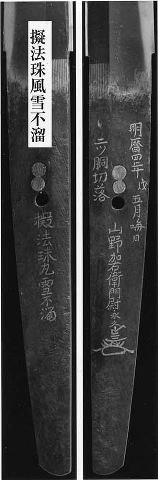 擬法珠風雪不溜
擬法珠風雪不溜
明暦四年戊五月晦日
二ツ胴切落
山野加右衛門尉永久